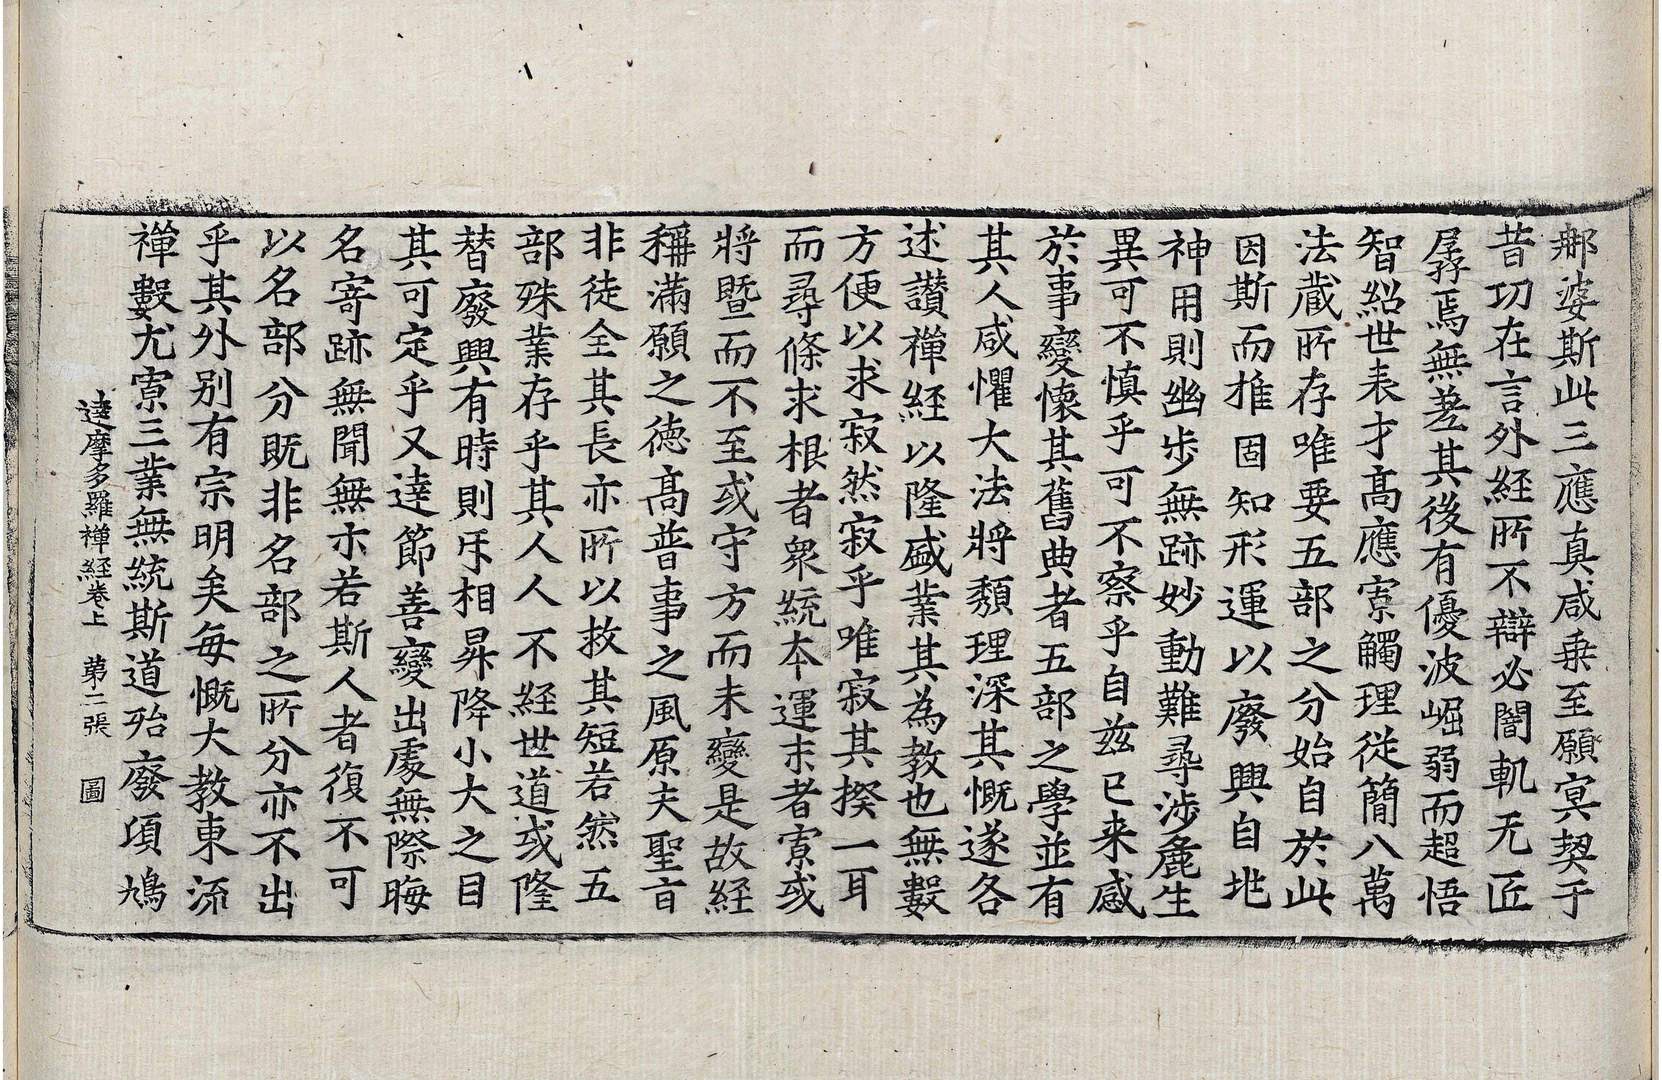 那婆斯此三應真咸乗至願冥契于
昔功在言外經所不辯必闇軌无匠
孱焉無差其後有優波崛弱而超悟
智紹世表才高應寡觸理從簡八萬
法蔵所存唯要五部之分始自於此
因斯而推固知形運以廢興自兆
神用則幽步無跡妙動難尋涉麁生
異可不慎乎可不察乎自兹已来感
於事變懐其舊典者五部之學並有
其人咸懼大法將頽理深其慨遂各
述讃禪經以隆盛業其為教也無數
方便以求寂然寂乎唯寂其揆一耳
而尋條求根者衆統本運末者寡或
將暨而不至或守方而未變是故經
稱滿願之徳髙普事之風原夫聖旨
非徒全其長亦所以救其短若然五
部殊業存乎其人人不經世道或隆
替廢興有時則㸦相昇降小大之目
其可定乎又達節善變出處無際晦
名寄跡無聞無示若斯人者復不可
以名部分既非名部之所分亦不出
乎其外别有宗明矣每慨大教東流
禪數尤寡三業無統斯道殆廢頃鳩
達摩多羅禅経卷上 第二張 圖